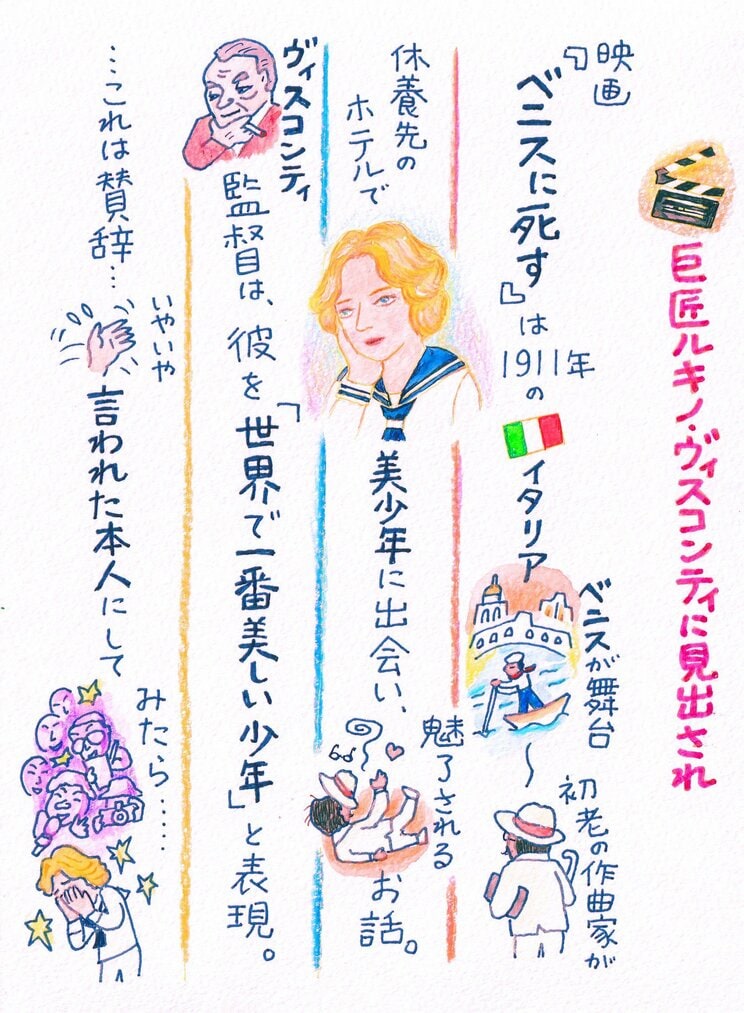 巨匠ルキノ・ヴィスコンティに見出され
映画
『ベニスに死す』は
1911年の
イタリア
ベニスが舞台
〜
初老の作曲家が
休養先の
ホテルで
美少年に出会い、
魅了される
お話。
ヴィスコンティ
監督は、彼を「世界で一番美しい少年」と表現。
…これは賛辞…
いやいや
言われた本人にして
みたら……